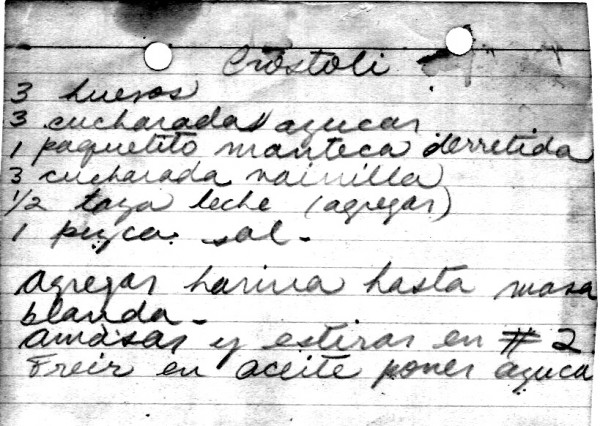 Crostoli
3 huevos
3 cucharadas azucar
1 paquetito manteca derretida
3 cucharada vainilla
1/2 taza leche (agregar)
1 pizca sal -
agregar harina hasta masa
blanda -
amasar y estirar en # 2
Freir en aceite poner azuca